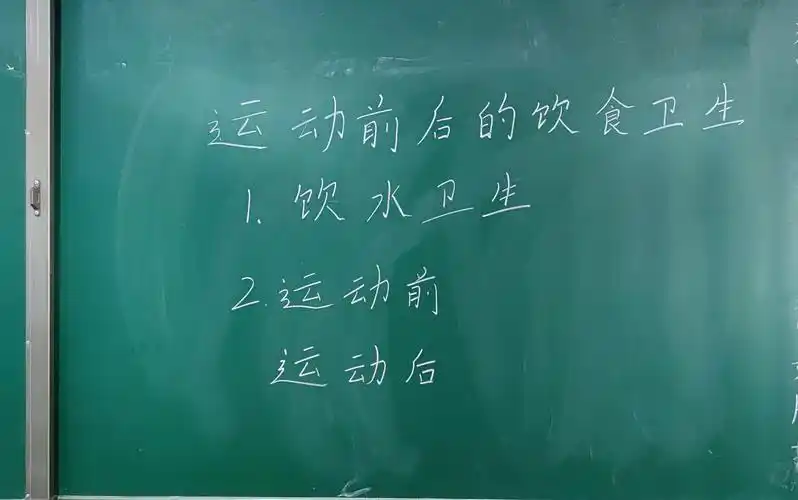 运动前后的饮食卫生
1. 饮水卫生
2. 运动前
运动后